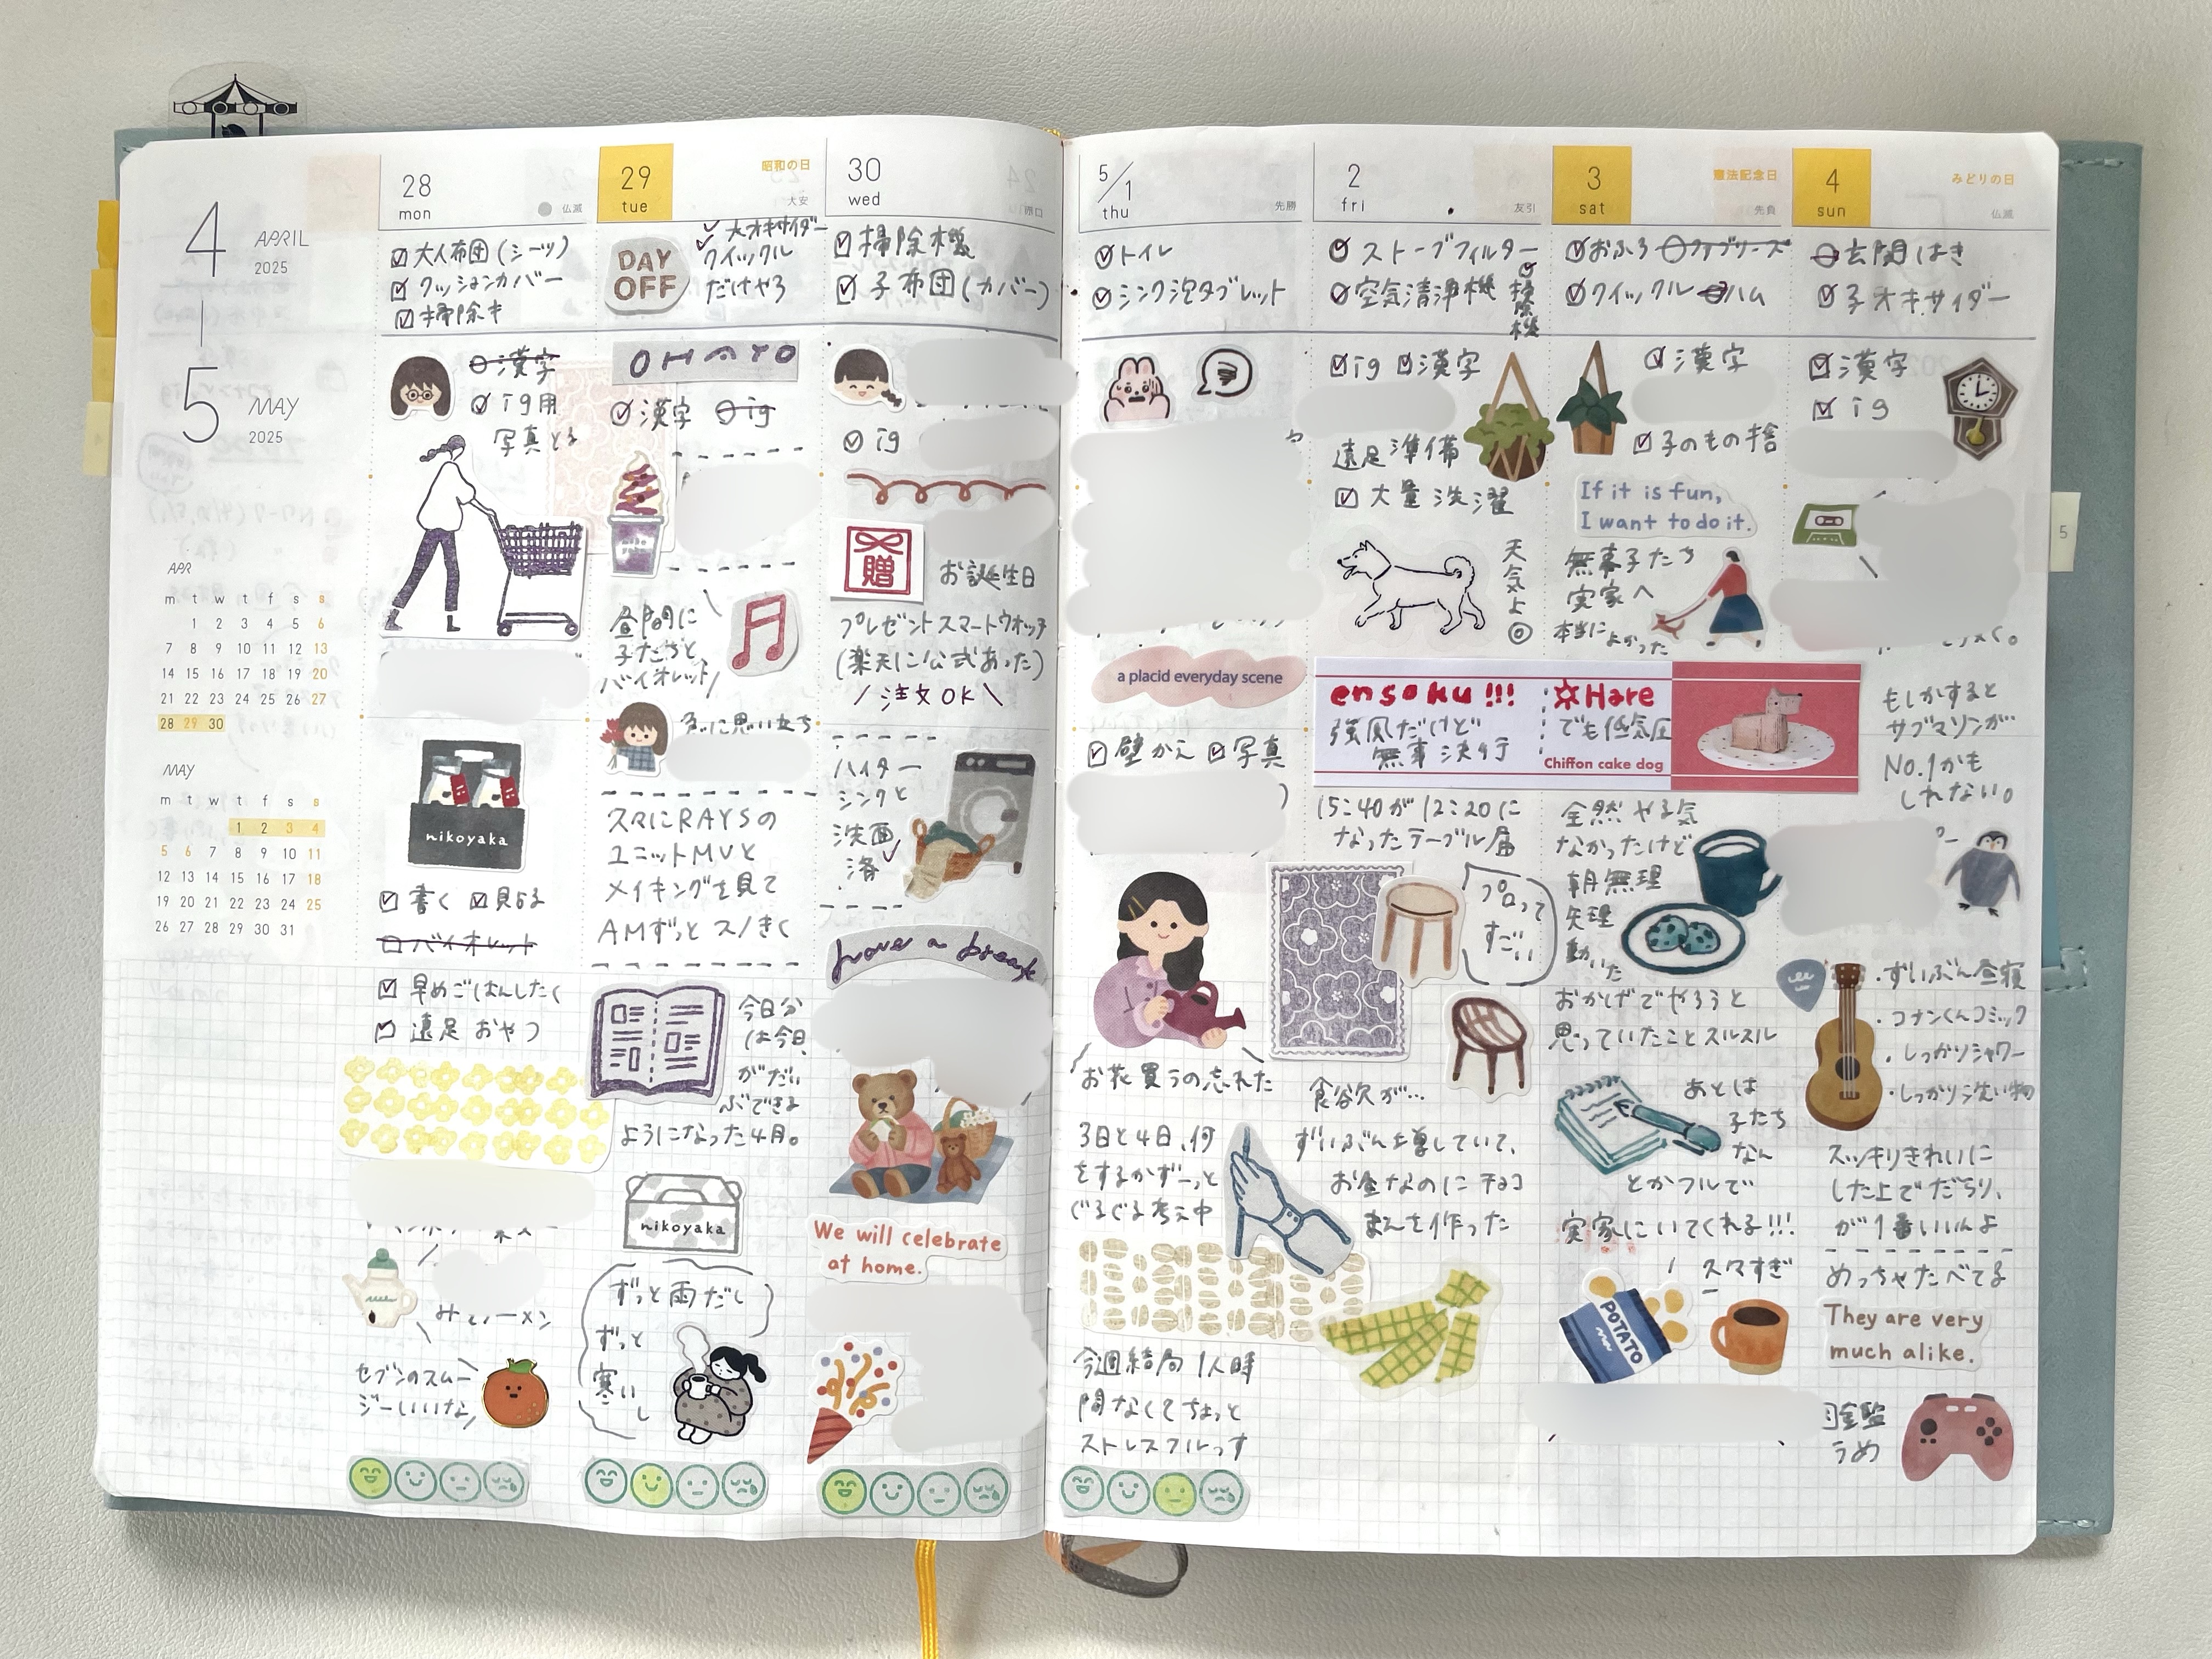 4 APRIL
2025
5 MAY
2025
APR
m t w t f s s
1 2 3 4 5 6
7 8 9 10 11 12 13
14 15 16 17 18 19 20
21 22 23 24 25 26 27
28 29 30
MAY
m t w t f s s
1 2 3 4
5 6 7 8 9 10 11
12 13 14 15 16 17 18
19 20 21 22 23 24 25
26 27 28 29 30 31
28
mon
仏滅
大人布団(シーツ)
クッションカバー
掃除キ
漢字
ig用
写真とる
nikoyaka
書く 見える
バイオレット
早めごはんしたく
遠足 おやつ
セブンのスムー
ジーいいな
29
tue
昭和の日
大安
DAY
OFF
大オキサイダー
クイックル
だけやろ
OHAYO
漢字 ig
昼間に
子たちと
バイオレット
急に思い立ち
久々にRAYSの
ユニットMVと
メイキングを見て
AMずっと スノきく
今日分
は今日
がだい
ぶできる
ようになった4月。
nikoyaka
ずっと雨だし
ずっと
寒い
し
30
wed
赤口
掃除機
子布団(カバー)
ig
贈
お誕生日
プレゼントスマートウォッチ
(楽天に公式あった)
注文OK
ハイター
シンクと
洗面
済
have a break
We will celebrate
at home.
5/1
thu
先勝
トイレ
シンク泡タブレット
a placid everyday scene
壁かえ 写真
お花買うの忘れた
3日と4日、何
をするかずーっと
ぐるぐる考え中
今週結局1人時
間なくてちょっと
ストレスフルっす
2
fri
友引
ストーブフィルター
空気清浄機
掃除機
ig 漢字
遠足準備
大量洗濯
天気よ◎
ensoku!!!
強風だけど
無事決行
15:40が12:20に
なったテーブル届
プロって
すごい
食欲が…
お昼なのにチョコ
まんを作った
3
sat
憲法記念日
先負
おふろ ファブリーズ
クイックル ハム
漢字
子のもの捨
If it is fun,
I want to do it.
無事子たち
実家へ
本当によかった
Hare
でも低気圧
Chiffon cake dog
全然やる気
なかったけど
朝無理
矢理
動いた
おかげでやろうと
思っていたことスルスル
あとは
子たち
なん
とかフルで
実家にいてくれる!!!
久々すぎ
POTATO
4
sun
みどりの日
仏滅
玄関はき
子オキサイダー
漢字
ig
もしかすると
サブマソンが…
No.1かも
しれない。
・ずいぶん昼寝
・コナンくんコミック
・しっかりシャワー
・しっかり洗い物
スッキリきれいに
した上でだらり、
が1番いいんよ
めっちゃたべてる
They are very
much alike.
うめ
5